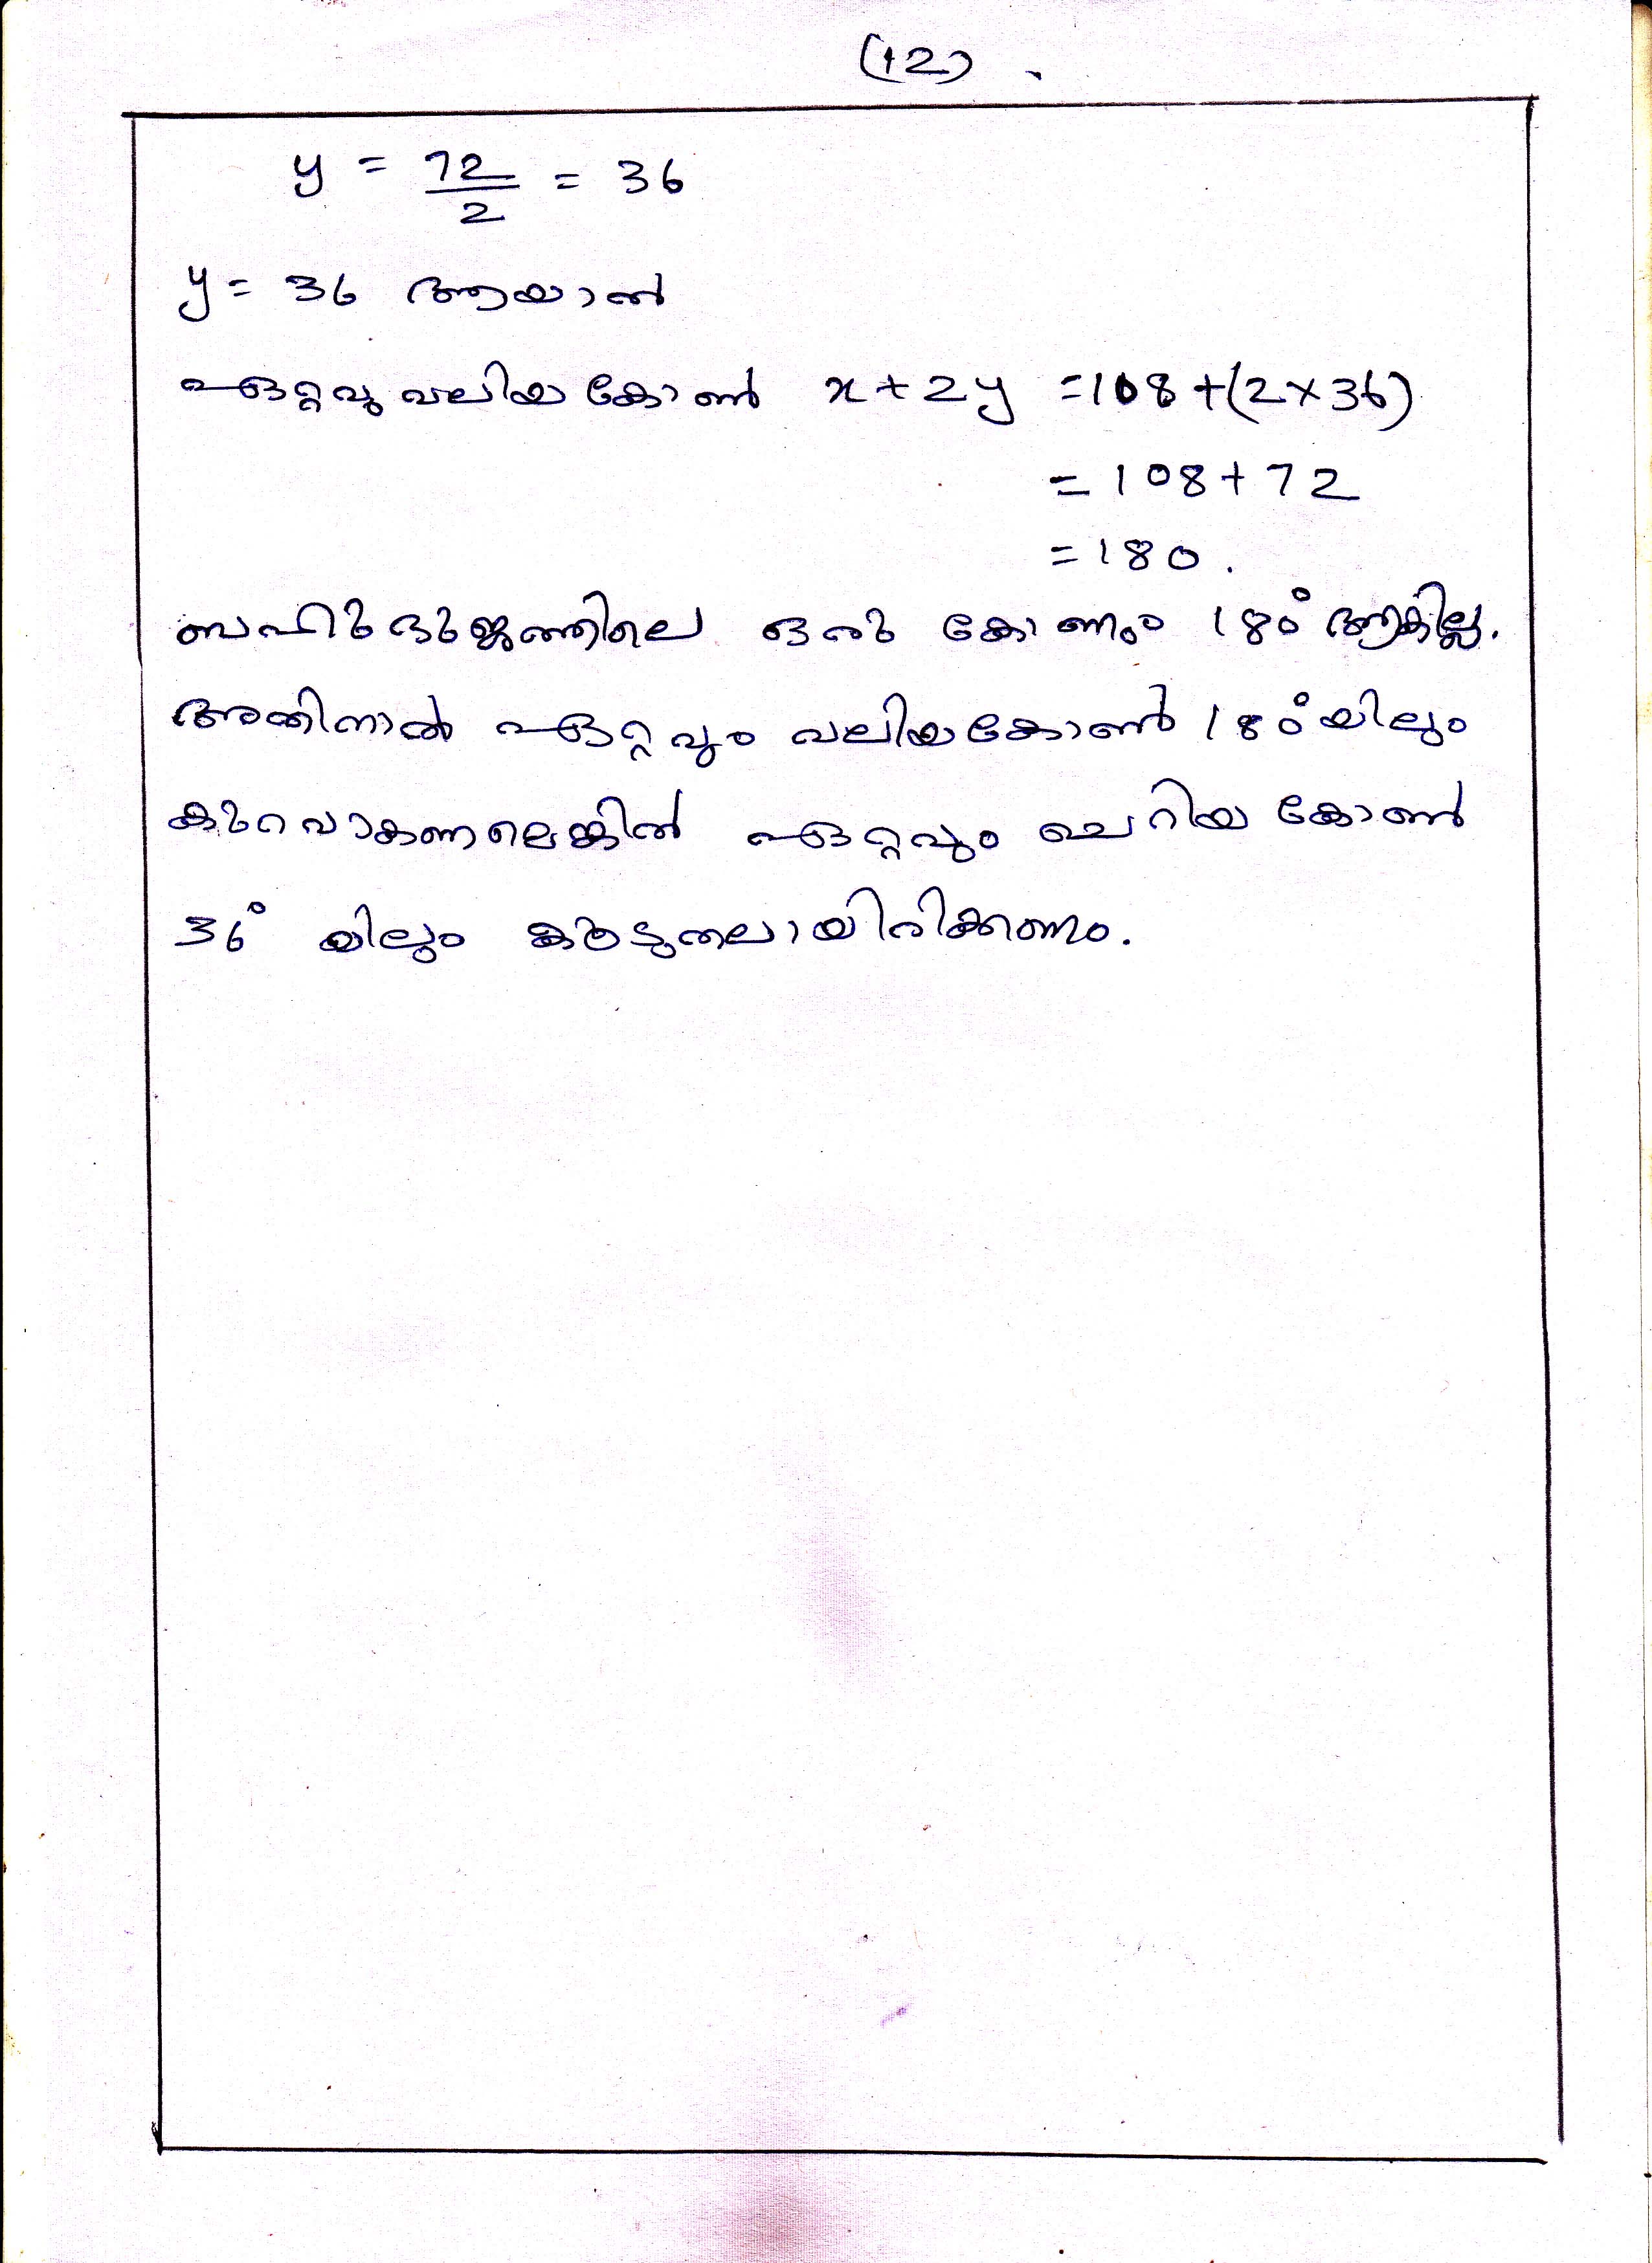 (12).
y = 72/2 = 36
y = 36 ആയാൽ
ഏറ്റവു വലിയ കോൺ x + 2y = 108 + (2 × 36)
= 108 + 72
= 180.
ബഹുഭുജത്തിലെ ഒരു കോണും 180° ആകില്ല.
അതിനാൽ ഏറ്റവും വലിയ കോൺ 180° യിലും
കുറവാകണമെങ്കിൽ ഏറ്റവും ചെറിയ കോൺ
36° യിലും കൂടുതലായിരിക്കണം.